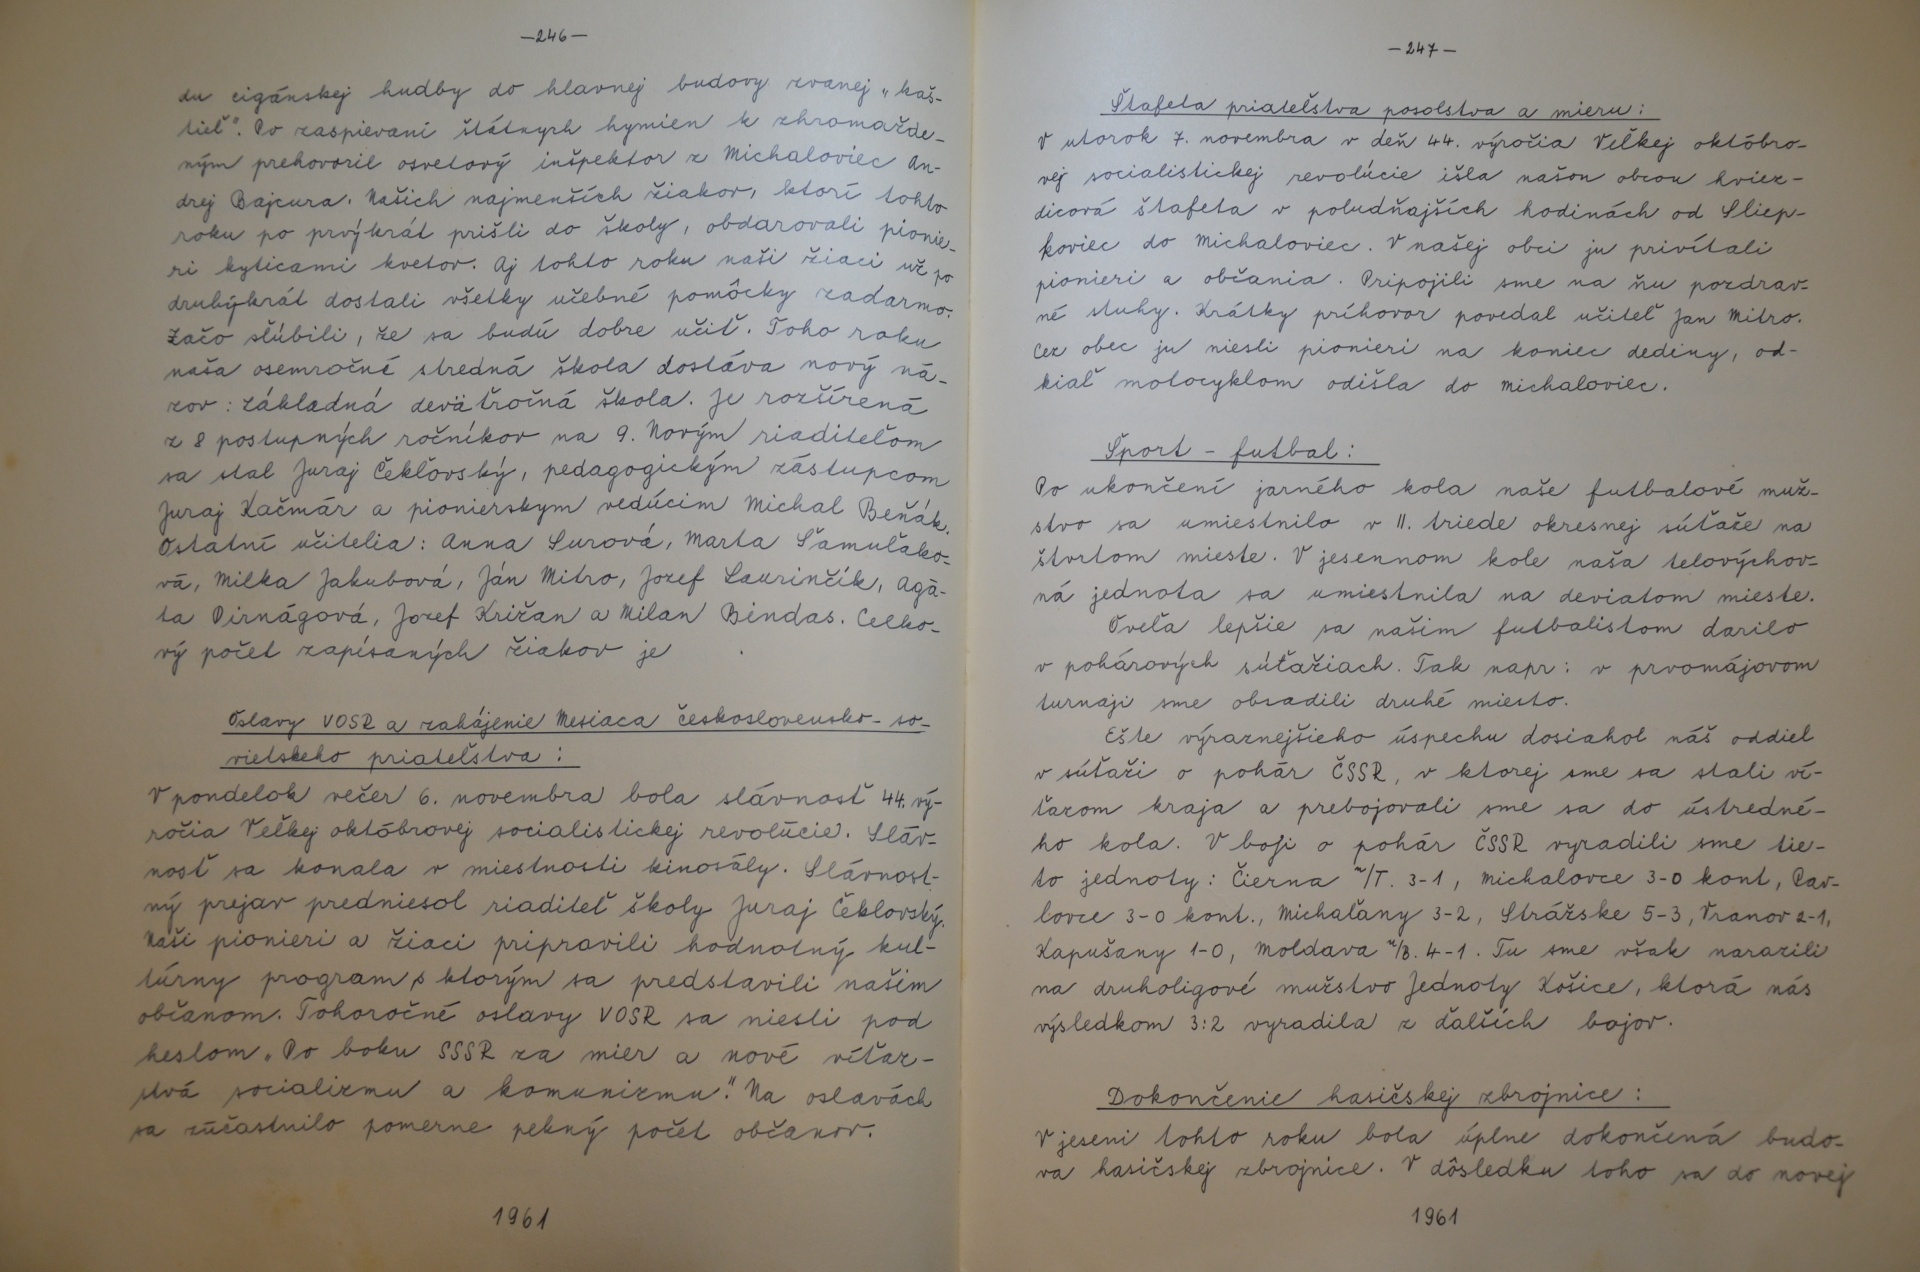 —246—
du cigánskej hudby do hlavnej budovy zvanej „kaš-
tieľ". Po zaspievaní štátnych hymien k zhromažde-
ným prehovoril osvetový inšpektor z Michaloviec An-
drej Bajcura. Našich najmenších žiakov, ktorí tohto
roku po prvýkrát prišli do školy, obdarovali pionie-
ri kyticami kvetov. Aj tohto roku naši žiaci už po
druhýkrát dostali všetky učebné pomôcky zadarmo.
Začo sľúbili, že sa budú dobre učiť. Toho roku
naša osemročné stredná škola dostáva nový ná-
zov: Základná deväťročná škola. Je rozšírená
z 8 postupných ročníkov na 9. Novým riaditeľom
sa stal Juraj Čekľovský, pedagogickým zástupcom
Juraj Kačmár a pionierskym vedúcim Michal Beňák.
Ostatní učitelia: Anna Surová, Marta Šamuľako-
vá, Milka Jakubová, Ján Mitro, Jozef Laurinčík, Agá-
ta Pirnágová, Jozef Križan a Milan Bindas. Celko-
vý počet zapísaných žiakov je .
Oslavy VOSR a zahájenie Mesiaca československo-so-
vietskeho priateľstva:
V pondelok večer 6. novembra bola slávnosť 44. vý-
ročia Veľkej októbrovej socialistickej revolúcie. Sláv-
nosť sa konala v miestnosti kinosály. Slávnost-
ný prejav predniesol riaditeľ školy Juraj Čeklovský.
Naši pionieri a žiaci pripravili hodnotný kul-
túrny program, s ktorým sa predstavili našim
občanom. Tohoročné oslavy VOSR sa niesli pod
heslom „Po boku SSSR za mier a nové víťaz-
stvá socializmu a komunizmu." Na oslavách
sa zúčastnilo pomerne pekný počet občanov.
1961
—247—
Štafeta priateľstva posolstva a mieru:
V utorok 7. novembra v deň 44. výročia Veľkej októbro-
vej socialistickej revolúcie išla našou obcou hviez-
dicová štafeta v poludňajších hodinách od Sliep-
koviec do Michaloviec. V našej obci ju privítali
pionieri a občania. Pripojili sme na ňu pozdrav-
né stuhy. Krátky príhovor povedal učiteľ Jan Mitro.
Cez obec ju niesli pionieri na koniec dediny, od-
kiaľ motocyklom odišla do Michaloviec.
Šport - futbal:
Po ukončení jarného kola naše futbalové muž-
stvo sa umiestnilo v II. triede okresnej súťaže na
štvrtom mieste. V jesennom kole naša telovýchov-
ná jednota sa umiestnila na deviatom mieste.
Oveľa lepšie sa našim futbalistom darilo
v pohárových súťažiach. Tak napr: v prvomájovom
turnaji sme obsadili druhé miesto.
Ešte výraznejšieho úspechu dosiahol náš oddiel
v súťaži o pohár ČSSR, v ktorej sme sa stali ví-
ťazom kraja a prebojovali sme sa do ústredné-
ho kola. V boji o pohár ČSSR vyradili sme tie-
to jednoty: Čierna n/T. 3-1, Michalovce 3-0 kont, Pav-
lovce 3-0 kont., Michaľany 3-2, Strážske 5-3, Vranov 2-1,
Kapušany 1-0, Moldava n/B. 4-1. Tu sme však narazili
na druholigové mužstvo Jednoty Košice, ktorá nás
výsledkom 3:2 vyradila z ďalších bojov.
Dokončenie hasičskej zbrojnice:
V jeseni tohto roku bola úplne dokončená budo-
va hasičskej zbrojnice. V dôsledku toho sa do novej
1961